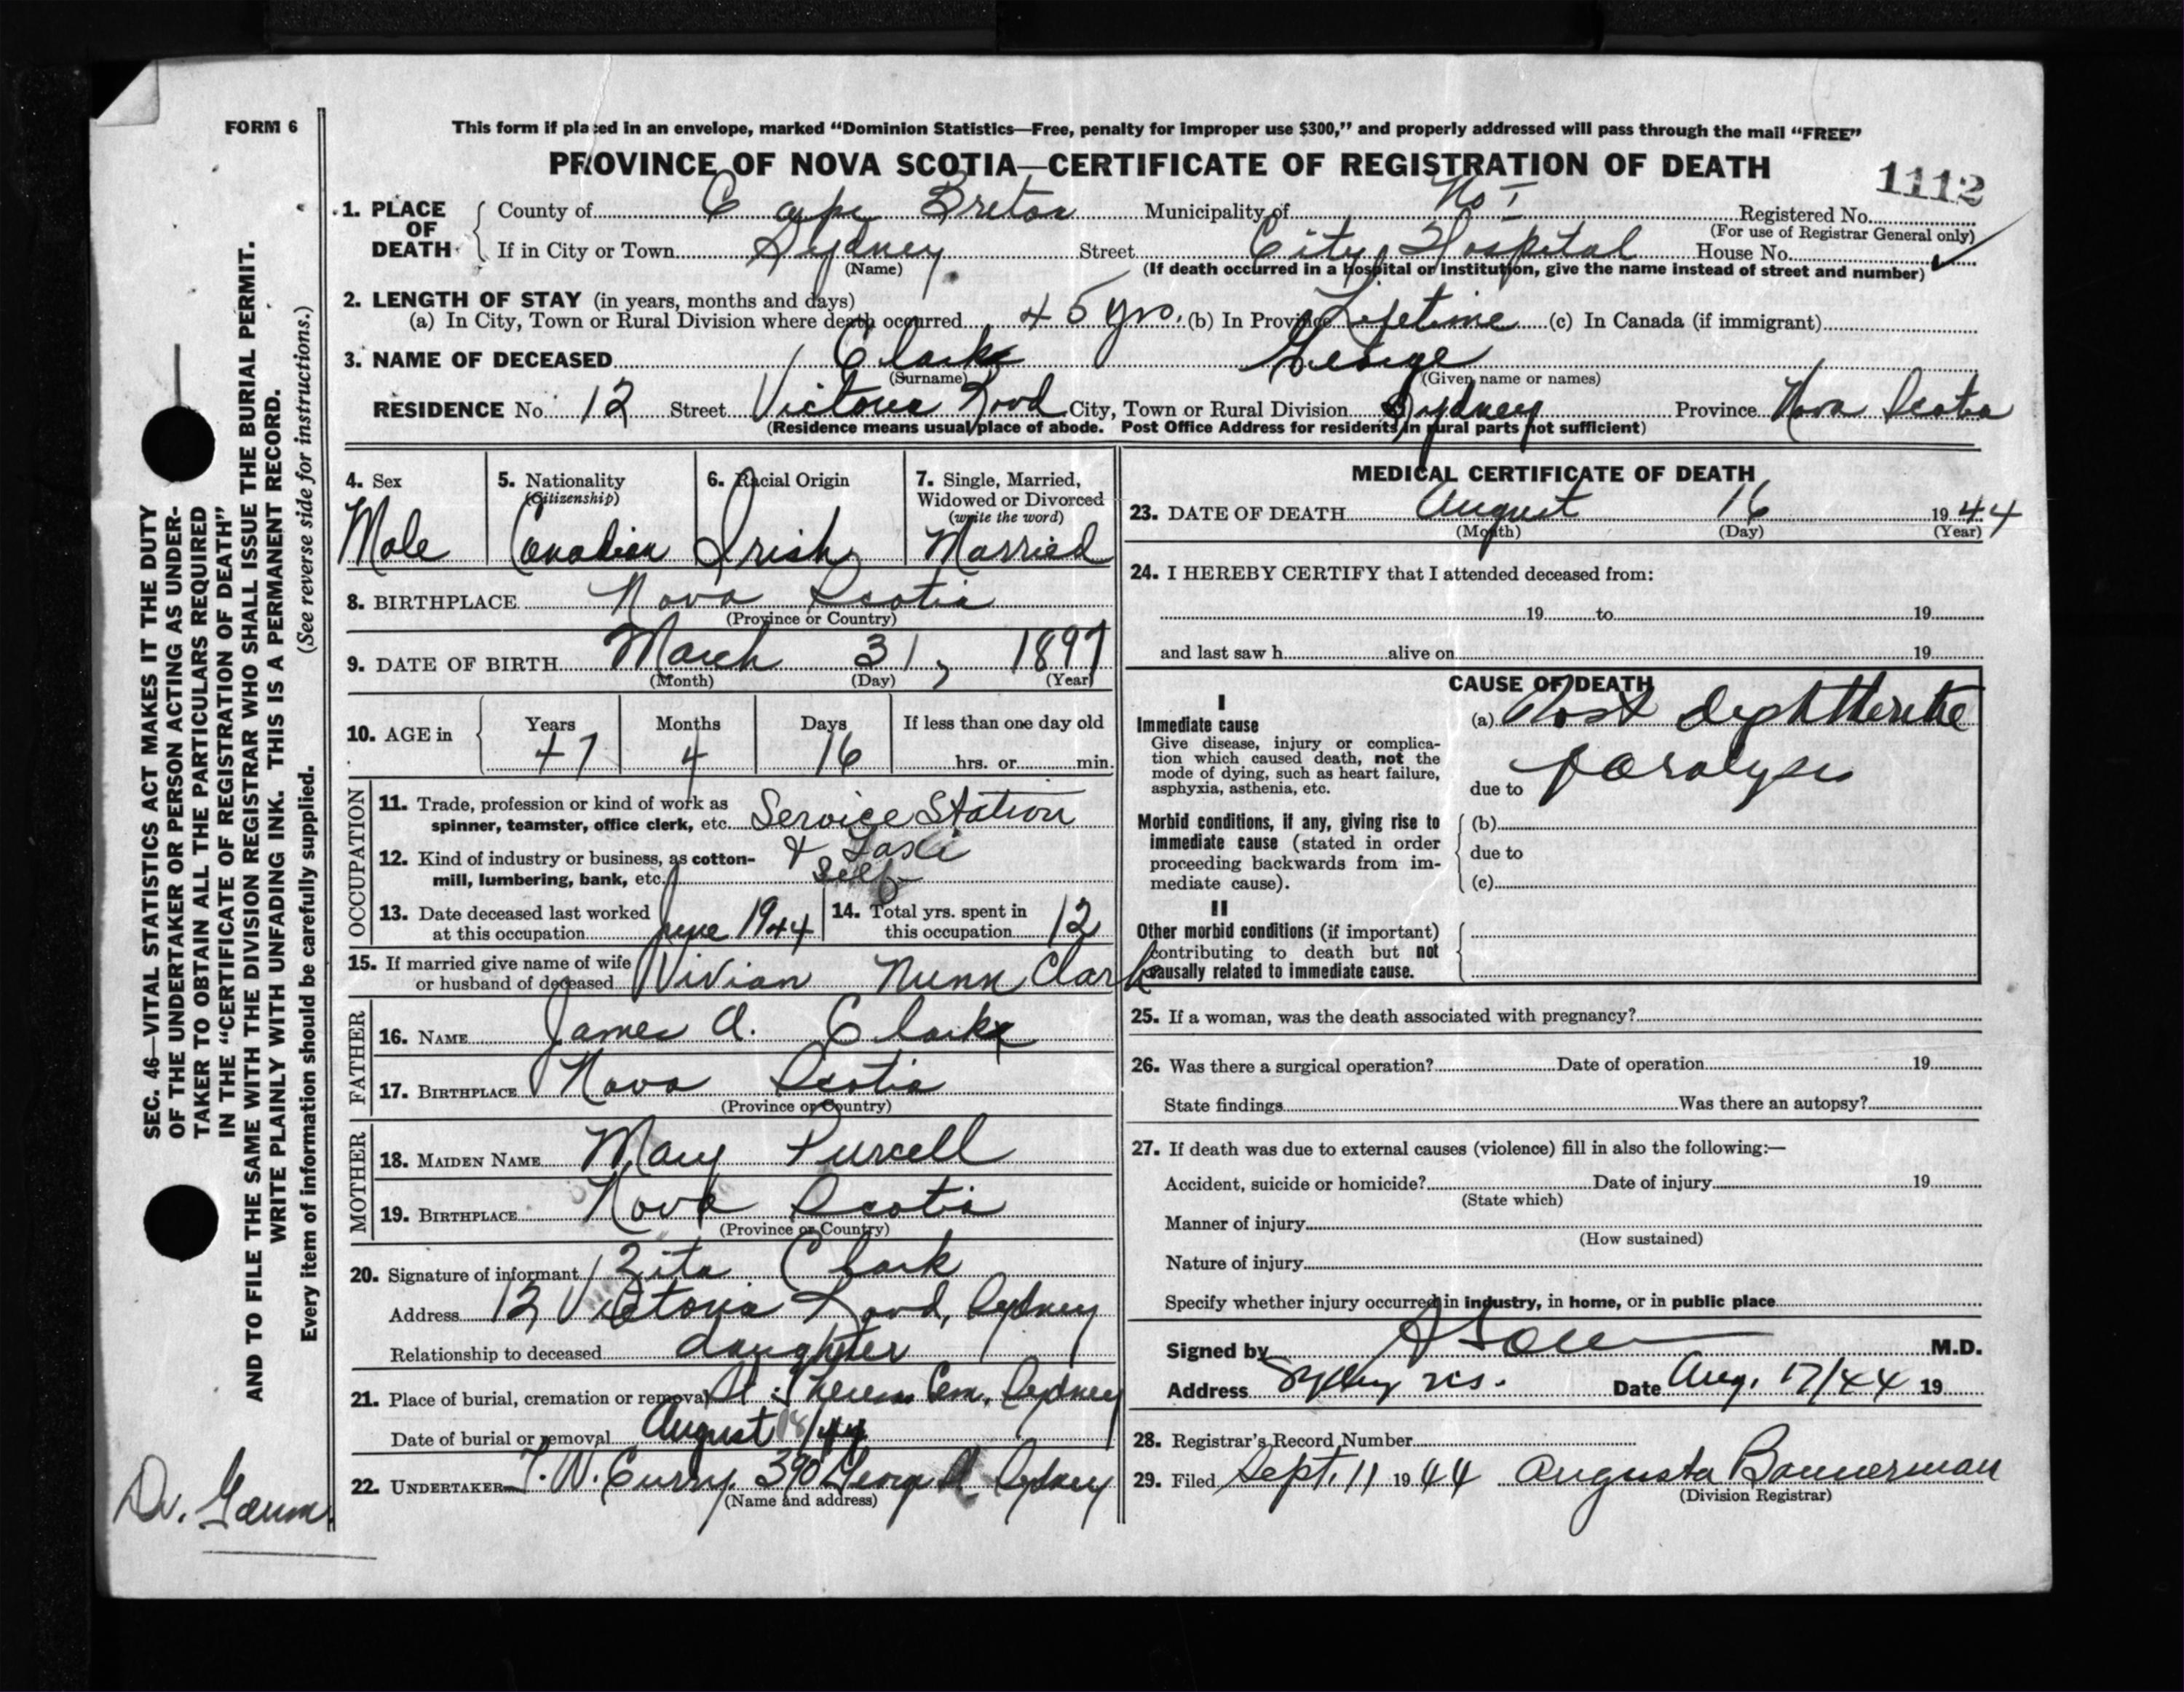 FORM 6
This form if placed in an envelope, marked “Dominion Statistics—Free, penalty for improper use $300,” and properly addressed will pass through the mail “FREE”
PROVINCE OF NOVA SCOTIA—CERTIFICATE OF REGISTRATION OF DEATH
1112
1. PLACE OF DEATH
County of Cape Breton Municipality of No 1 Registered No.
(For use of Registrar General only)
If in City or Town Sydney Street City Hospital House No.
(Name) (If death occurred in a hospital or institution, give the name instead of street and number)
2. LENGTH OF STAY (in years, months and days)
(a) In City, Town or Rural Division where death occurred 45 yrs. (b) In Province Lifetime (c) In Canada (if immigrant)
3. NAME OF DECEASED Clark George
(Surname) (Given name or names)
RESIDENCE No. 12 Street Victoria Road City, Town or Rural Division Sydney Province Nova Scotia
(Residence means usual place of abode. Post Office Address for residents in rural parts not sufficient)
4. Sex
Male
5. Nationality
(Citizenship)
Canadian
6. Racial Origin
Irish
7. Single, Married,
Widowed or Divorced
(write the word)
Married
8. BIRTHPLACE Nova Scotia
(Province or Country)
9. DATE OF BIRTH March 31, 1897
(Month) (Day) (Year)
10. AGE in
Years Months Days If less than one day old
47 4 16 hrs. or min.
OCCUPATION
11. Trade, profession or kind of work as
spinner, teamster, office clerk, etc. Service Station
& Taxi
12. Kind of industry or business, as cotton-
mill, lumbering, bank, etc. Self
13. Date deceased last worked
at this occupation June 1944
14. Total yrs. spent in
this occupation 12
15. If married give name of wife
or husband of deceased Vivian Nunn Clark
FATHER
16. NAME James A. Clark
17. BIRTHPLACE Nova Scotia
(Province or Country)
MOTHER
18. MAIDEN NAME Mary Purcell
19. BIRTHPLACE Nova Scotia
(Province or Country)
20. Signature of informant Zita Clark
Address 12 Victoria Road, Sydney
Relationship to deceased daughter
21. Place of burial, cremation or removal St. Theresa Cem. Sydney
Date of burial or removal August 18/44
22. UNDERTAKER T. W. Curry. 390 George St Sydney
(Name and address)
MEDICAL CERTIFICATE OF DEATH
23. DATE OF DEATH August 16 1944
(Month) (Day) (Year)
24. I HEREBY CERTIFY that I attended deceased from:
19 to 19
and last saw h alive on 19
CAUSE OF DEATH
I
Immediate cause
Give disease, injury or complica-
tion which caused death, not the
mode of dying, such as heart failure,
asphyxia, asthenia, etc.
(a) Post diphtheritic
due to paralysis
Morbid conditions, if any, giving rise to
immediate cause (stated in order
proceeding backwards from im-
mediate cause).
(b)
due to
(c)
II
Other morbid conditions (if important)
contributing to death but not
causally related to immediate cause.
25. If a woman, was the death associated with pregnancy?
26. Was there a surgical operation? Date of operation 19
State findings Was there an autopsy?
27. If death was due to external causes (violence) fill in also the following:—
Accident, suicide or homicide? Date of injury 19
(State which)
Manner of injury
(How sustained)
Nature of injury
Specify whether injury occurred in industry, in home, or in public place
Signed by M.D.
Address Sydney N.S. Date Aug. 17/44 19
28. Registrar's Record Number
29. Filed Sept. 11 1944 Augusta Bannerman
(Division Registrar)
SEC. 46—VITAL STATISTICS ACT MAKES IT THE DUTY
OF THE UNDERTAKER OR PERSON ACTING AS UNDER-
TAKER TO OBTAIN ALL THE PARTICULARS REQUIRED
IN THE “CERTIFICATE OF REGISTRATION OF DEATH”
AND TO FILE THE SAME WITH THE DIVISION REGISTRAR WHO SHALL ISSUE THE BURIAL PERMIT.
WRITE PLAINLY WITH UNFADING INK. THIS IS A PERMANENT RECORD.
Every item of information should be carefully supplied. (See reverse side for instructions.)
Dr. Gaum